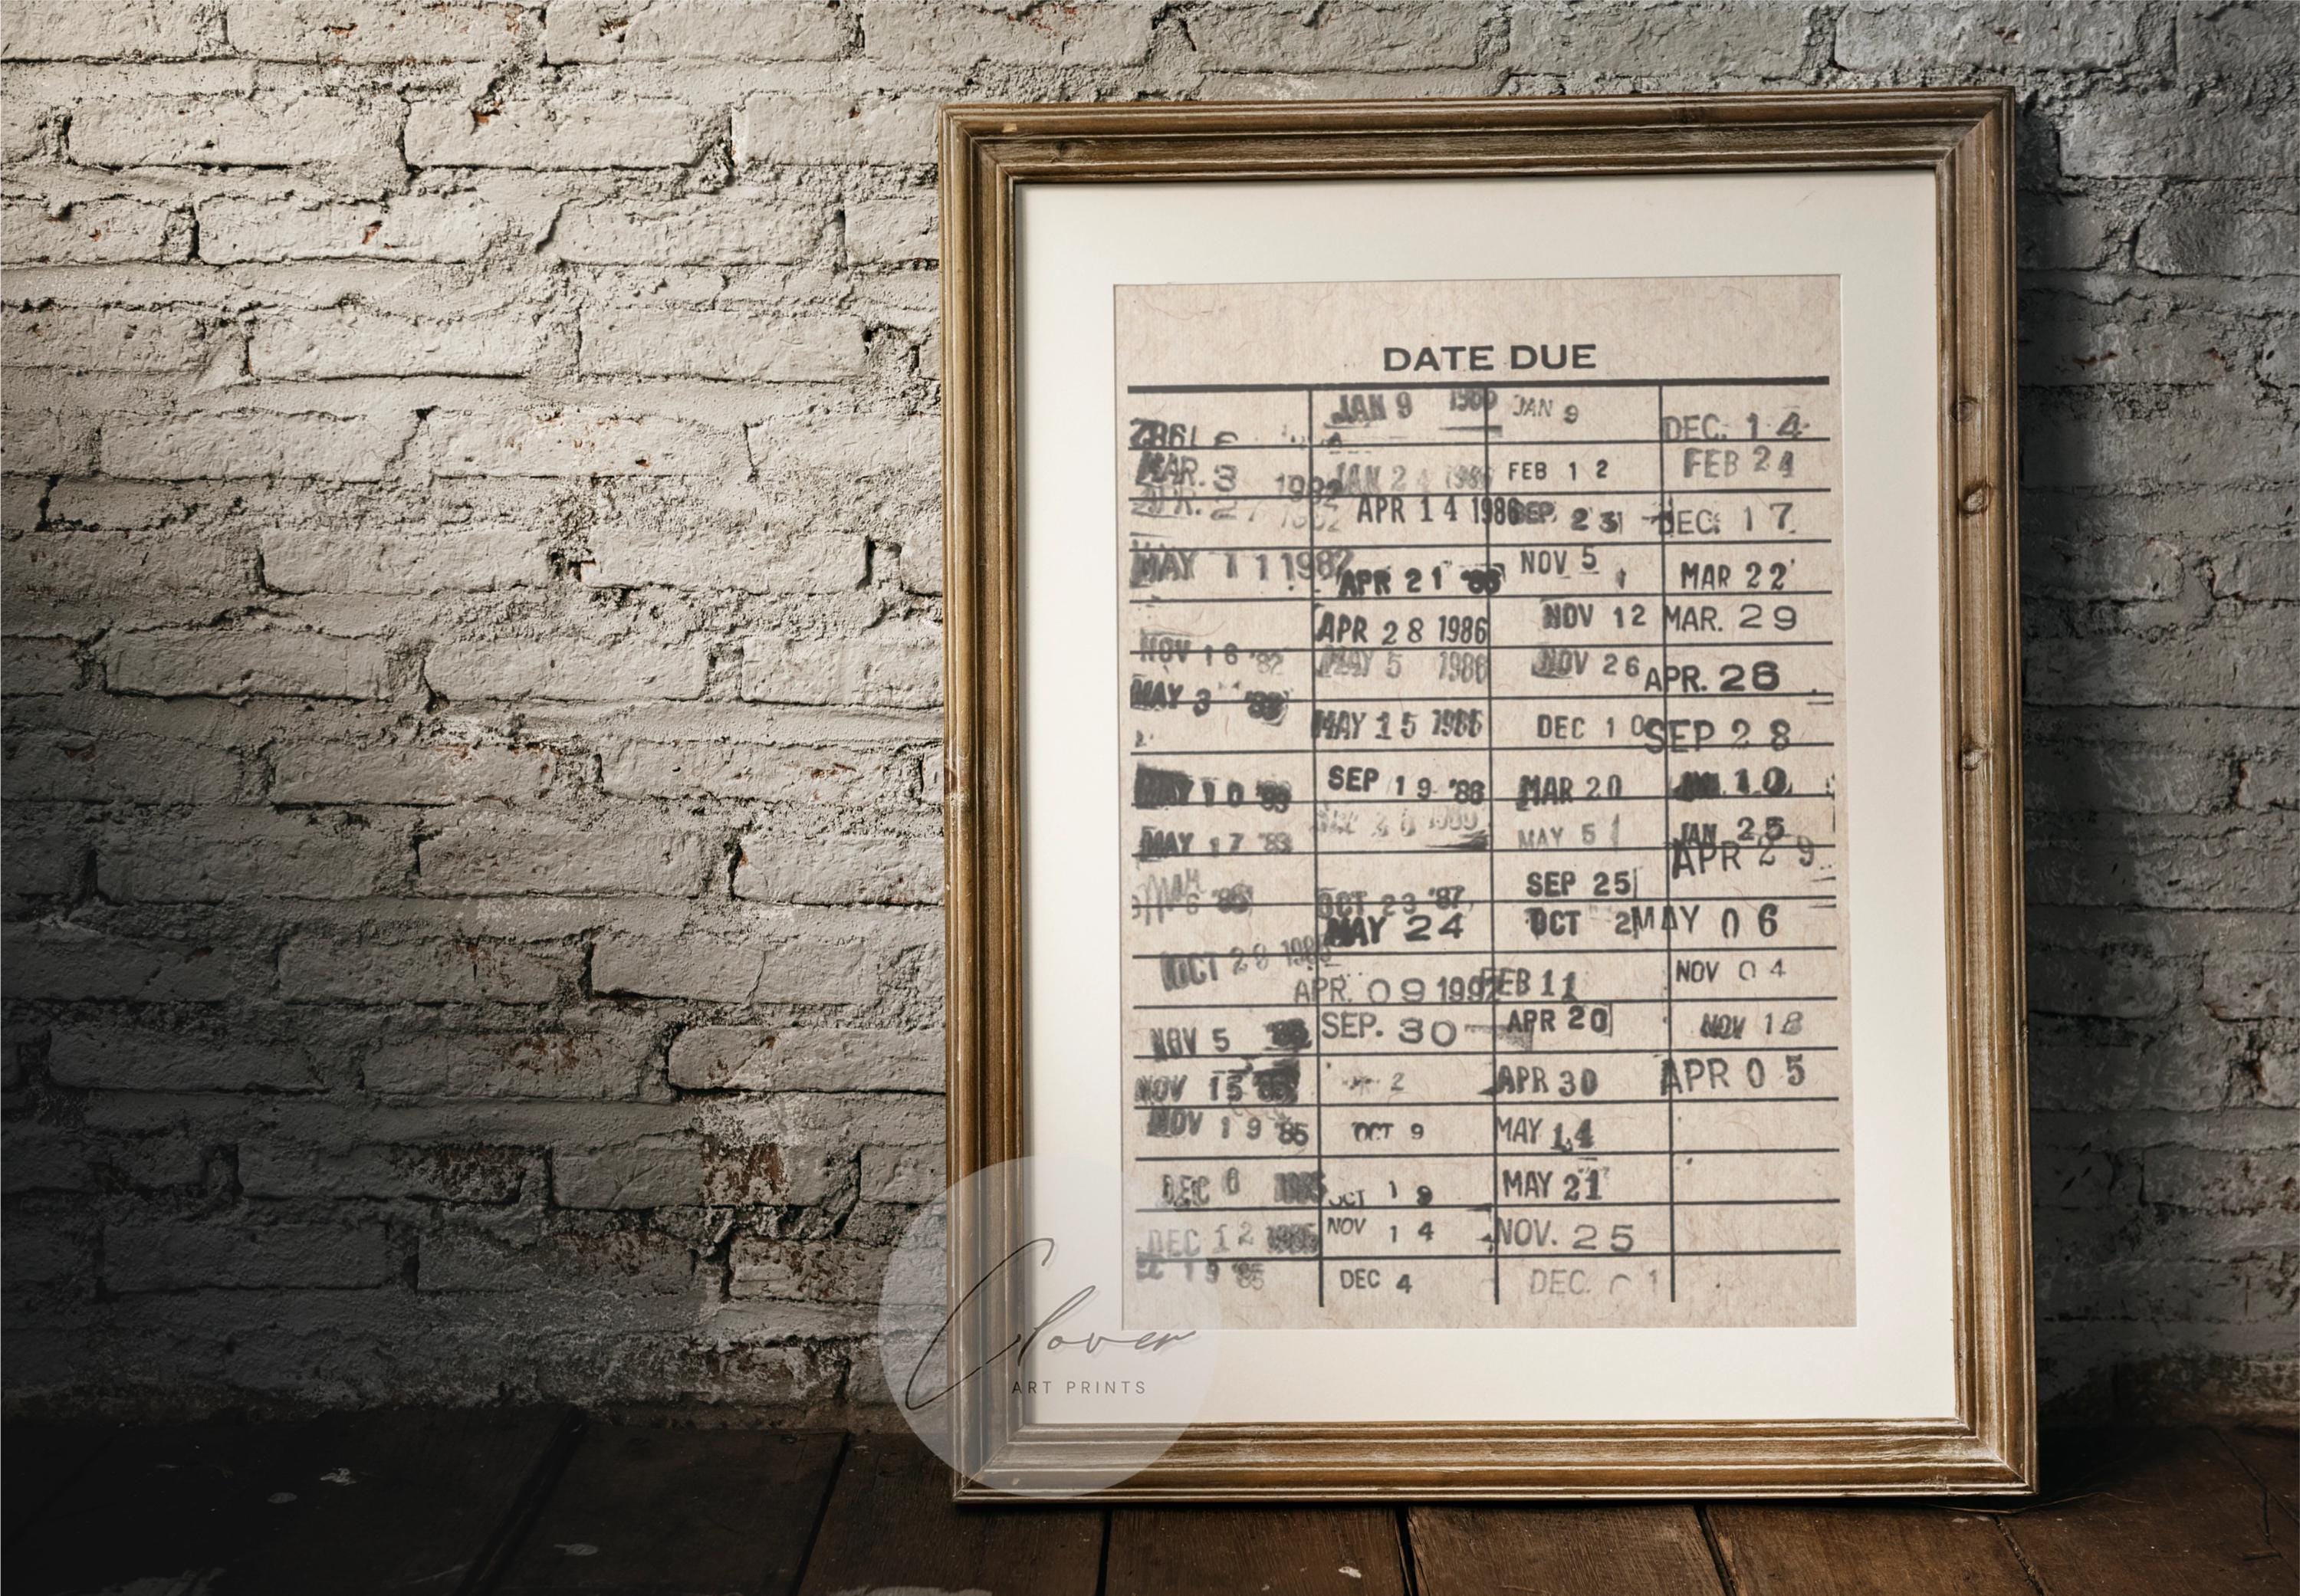 DATE DUE
JAN 9 JAN 9 DEC. 14
MAR. 3 JAN 2 FEB 12 FEB 24
APR 14 1986 SEP 23 DEC. 17
MAY 11 1982 APR 21 '86 NOV 5 MAR 22
APR 28 1986 NOV 12 MAR. 29
NOV 16 '82 MAY 5 1986 NOV 26 APR. 26
MAY 3 '83 MAY 15 1986 DEC 10 SEP 28
MAY 10 '83 SEP 19 '86 MAR 20 JAN. 10
MAY 17 '83 MAY 5 JAN 25
APR 29
SEP 25
OCT 23 '87
MAY 24 OCT 2 MAY 06
OCT 29 APR. 09 1992 FEB 11 NOV 04
NOV 5 SEP. 30 APR 20 NOV 18
NOV 15 2 APR 30 APR 05
NOV 19 '85 OCT 9 MAY 14
DEC 6 OCT 19 MAY 21
DEC 12 NOV 14 NOV. 25
19 '85 DEC 4 DEC. 1
Clover
ART PRINTS